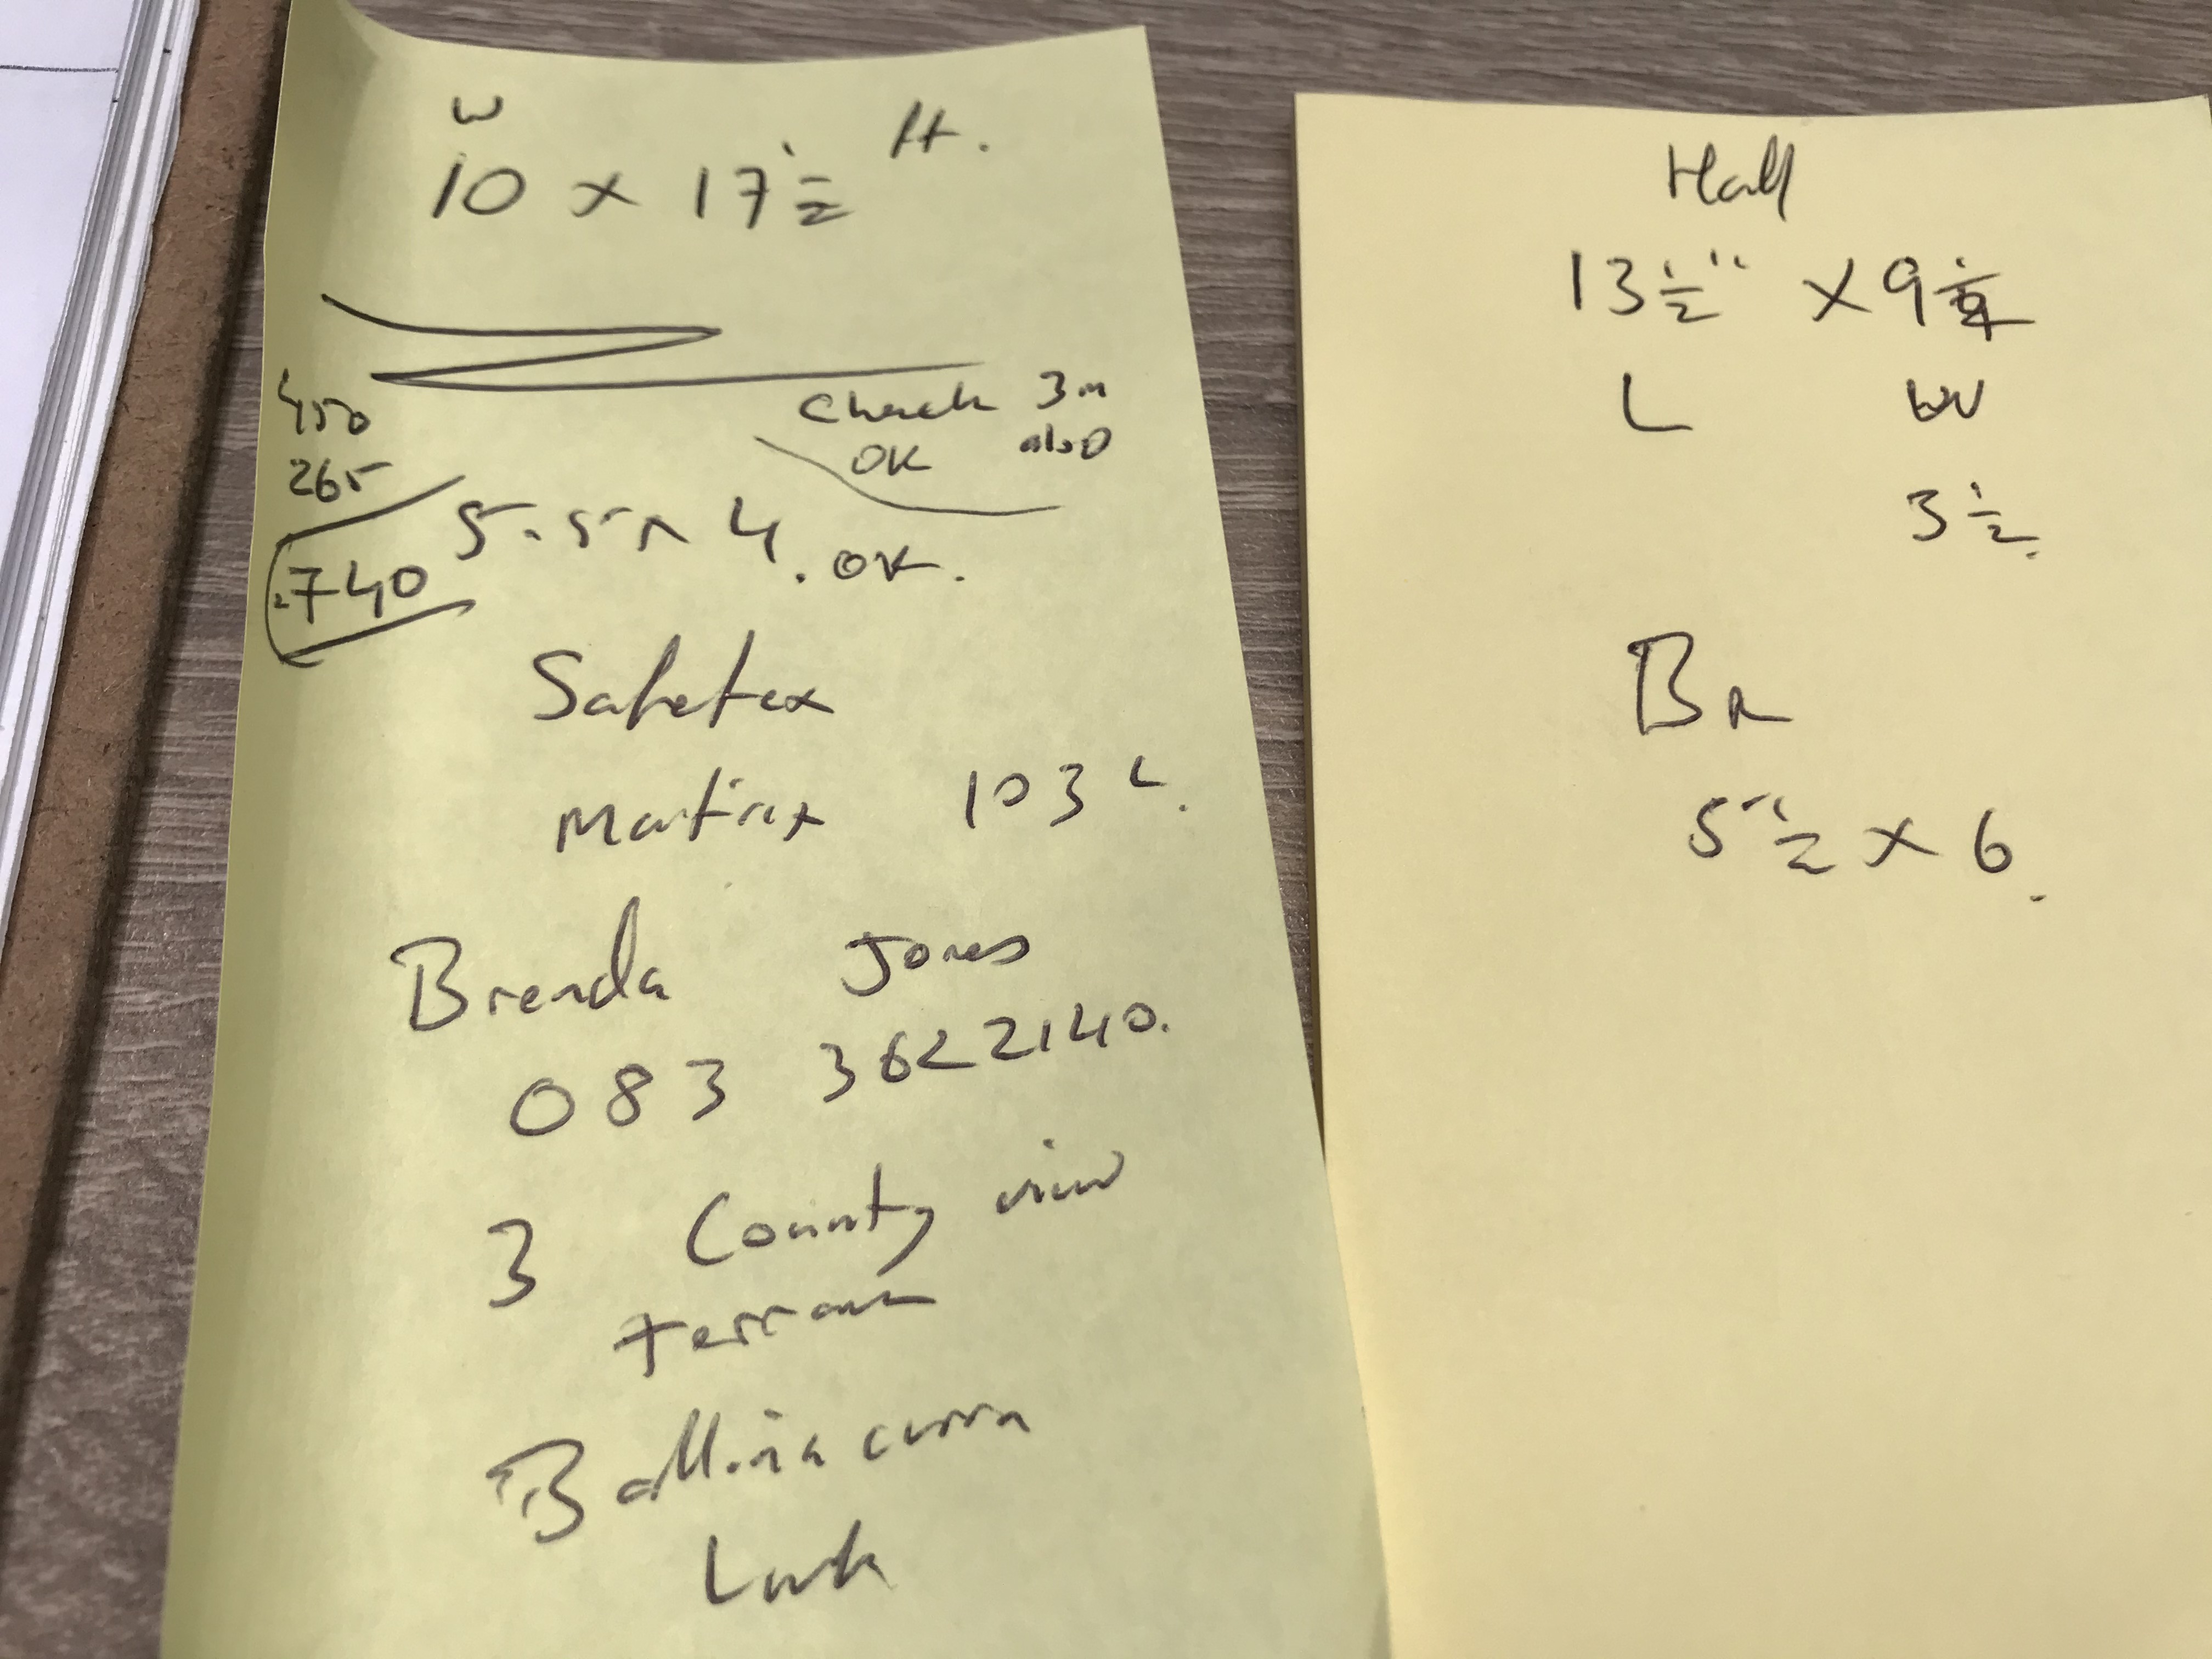 W
10 x 17 ½ ft.
450
265
740
Check 3m
OK also
5.5 x 4. OK.
Safetex
Matrix 103 L.
Brenda Jones
083 3622140.
3 County view
terrace
Ballinacurra
Hall
13 ½" x 9
L W
3 ½.
BR
5 ½ x 6.